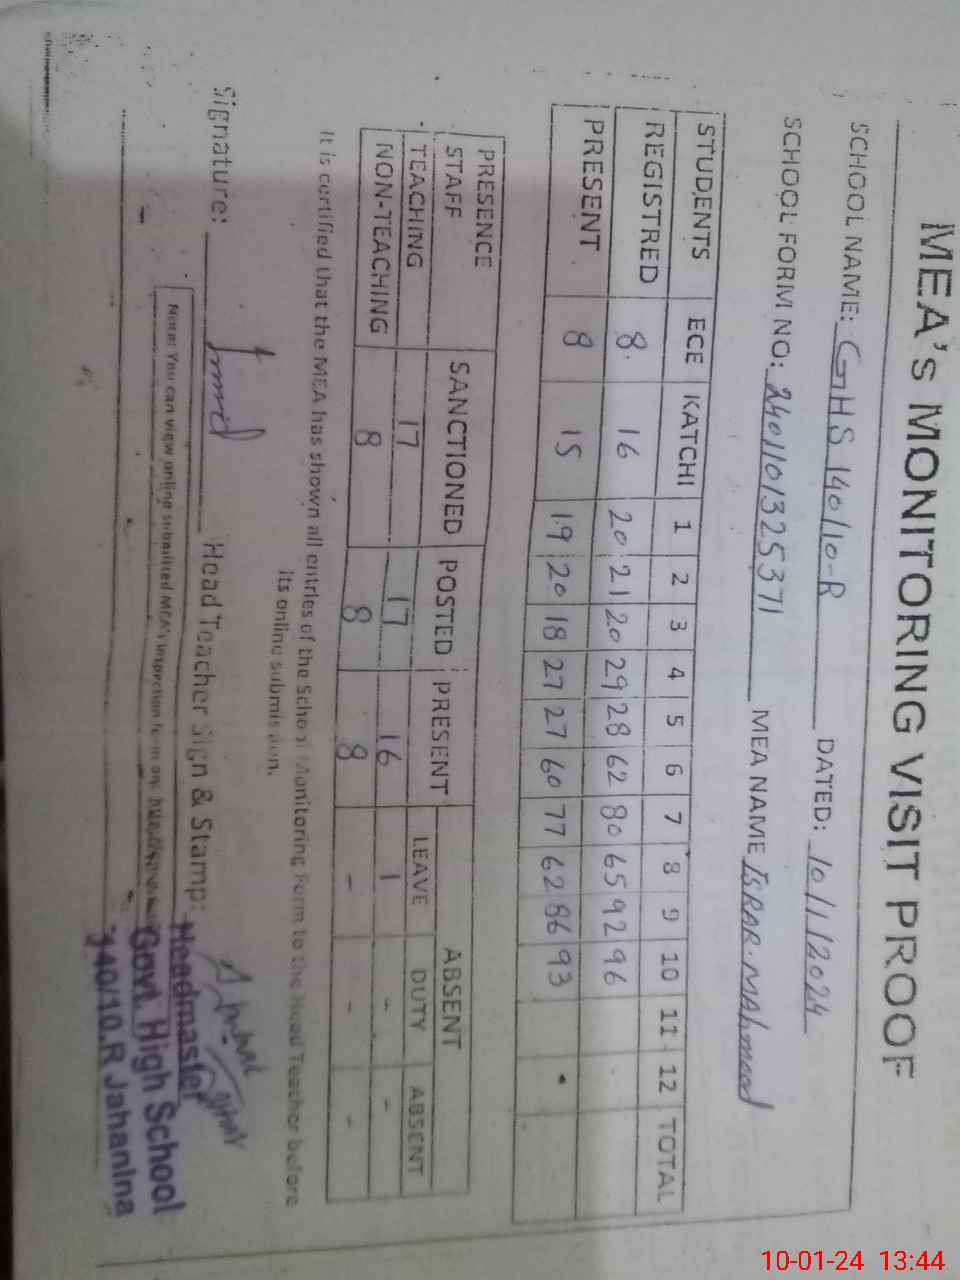 MEA's MONITORING VISIT PROOF
SCHOOL NAME: GHS 140/10-R DATED: 10/1/2024
SCHOOL FORM NO: 2401101325371 MEA NAME ISRAR. MAhmood
STUDENTS ECE KATCHI 1 2 3 4 5 6 7 8 9 10 11 12 TOTAL
REGISTRED 8 16 20 21 20 29 28 62 80 65 92 96
PRESENT 8 15 19 20 18 27 27 60 77 62 86 93
PRESENCE
STAFF SANCTIONED POSTED PRESENT ABSENT
LEAVE DUTY ABSENT
TEACHING 17 17 16 1 - -
NON-TEACHING 8 8 8 - - -
It is certified that the MEA has shown all entries of the School Monitoring Form to the Head Teacher before
its online submission.
Signature: Head Teacher Sign & Stamp:
Headmaster
Govt. High School
140/10.R Jahanina
Note: You can view online submitted MEA's inspection form on:
10-01-24 13:44